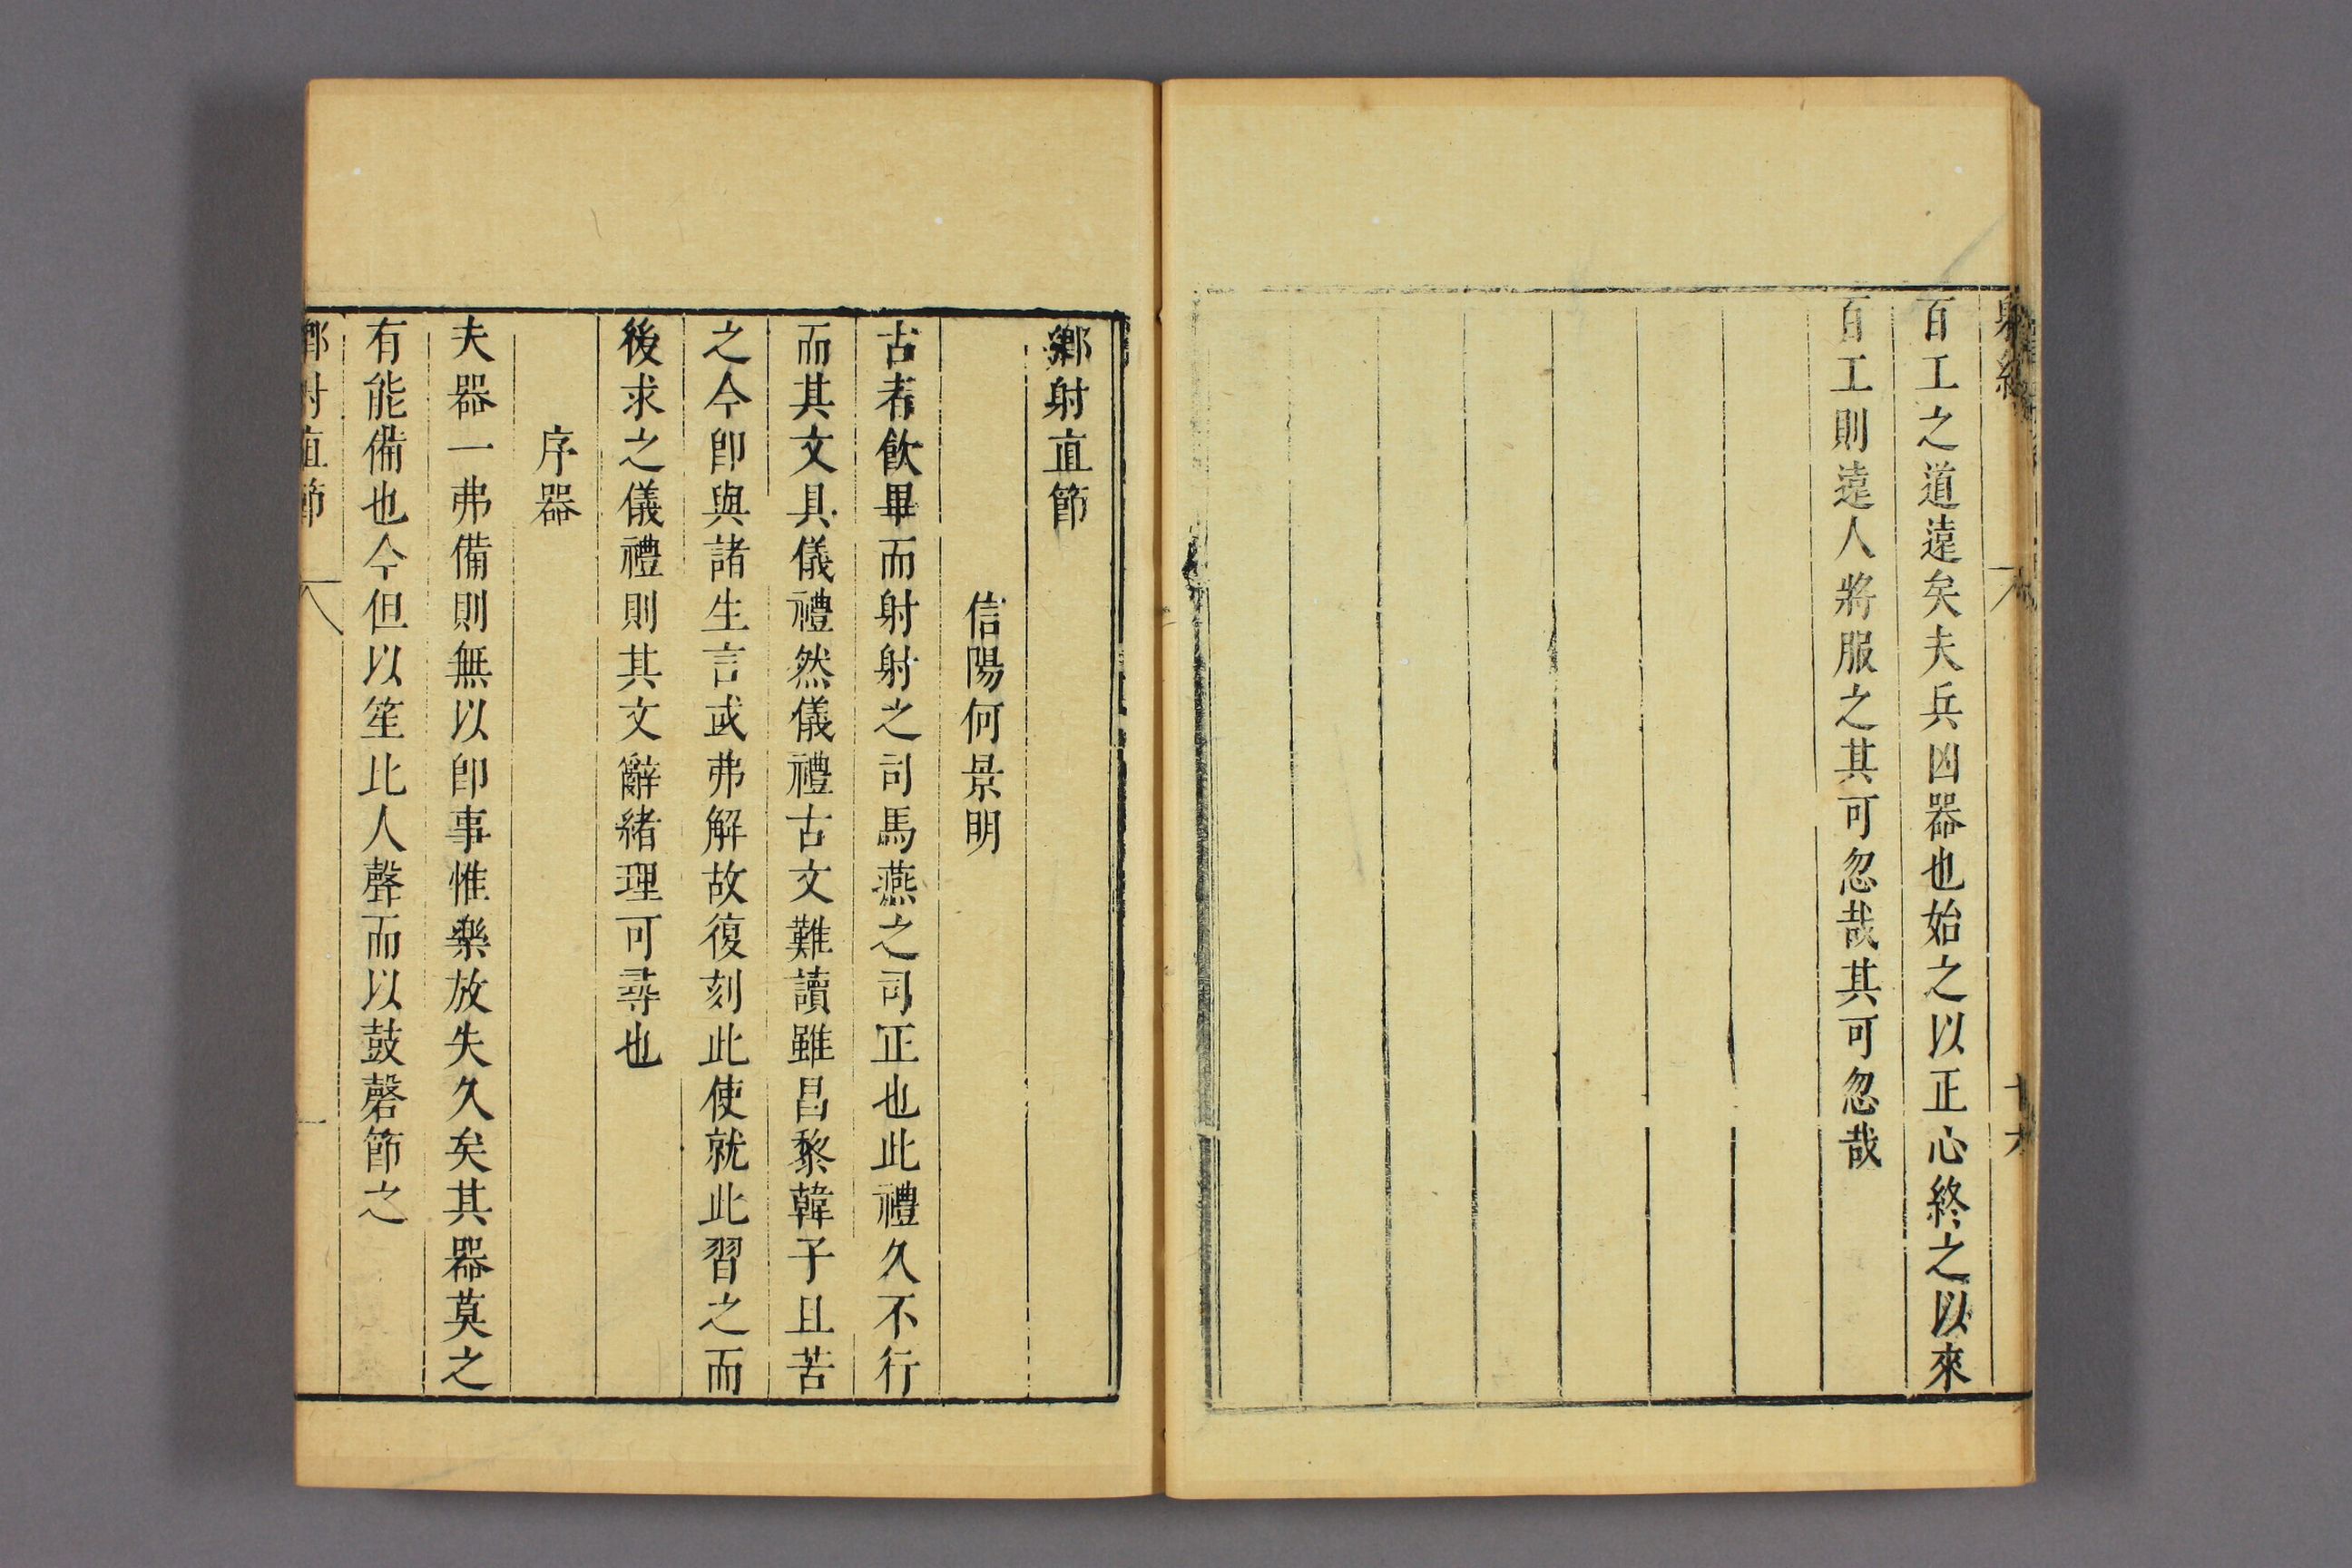 射經 十六
百工之道遠矣夫兵凶器也始之以正心終之以來
百工則遠人將服之其可忽哉其可忽哉
鄉射直節
信陽何景明
古者飲畢而射射之司馬燕之司正也此禮久不行
而其文具儀禮然儀禮古文難讀雖昌黎韓子且苦
之今卽與諸生言或弗解故復刻此使就此習之而
後求之儀禮則其文辭緒理可尋也
序器
夫器一弗備則無以卽事惟樂放失久矣其器莫之
有能備也今但以笙比人聲而以鼓磬節之
鄉射直節 一